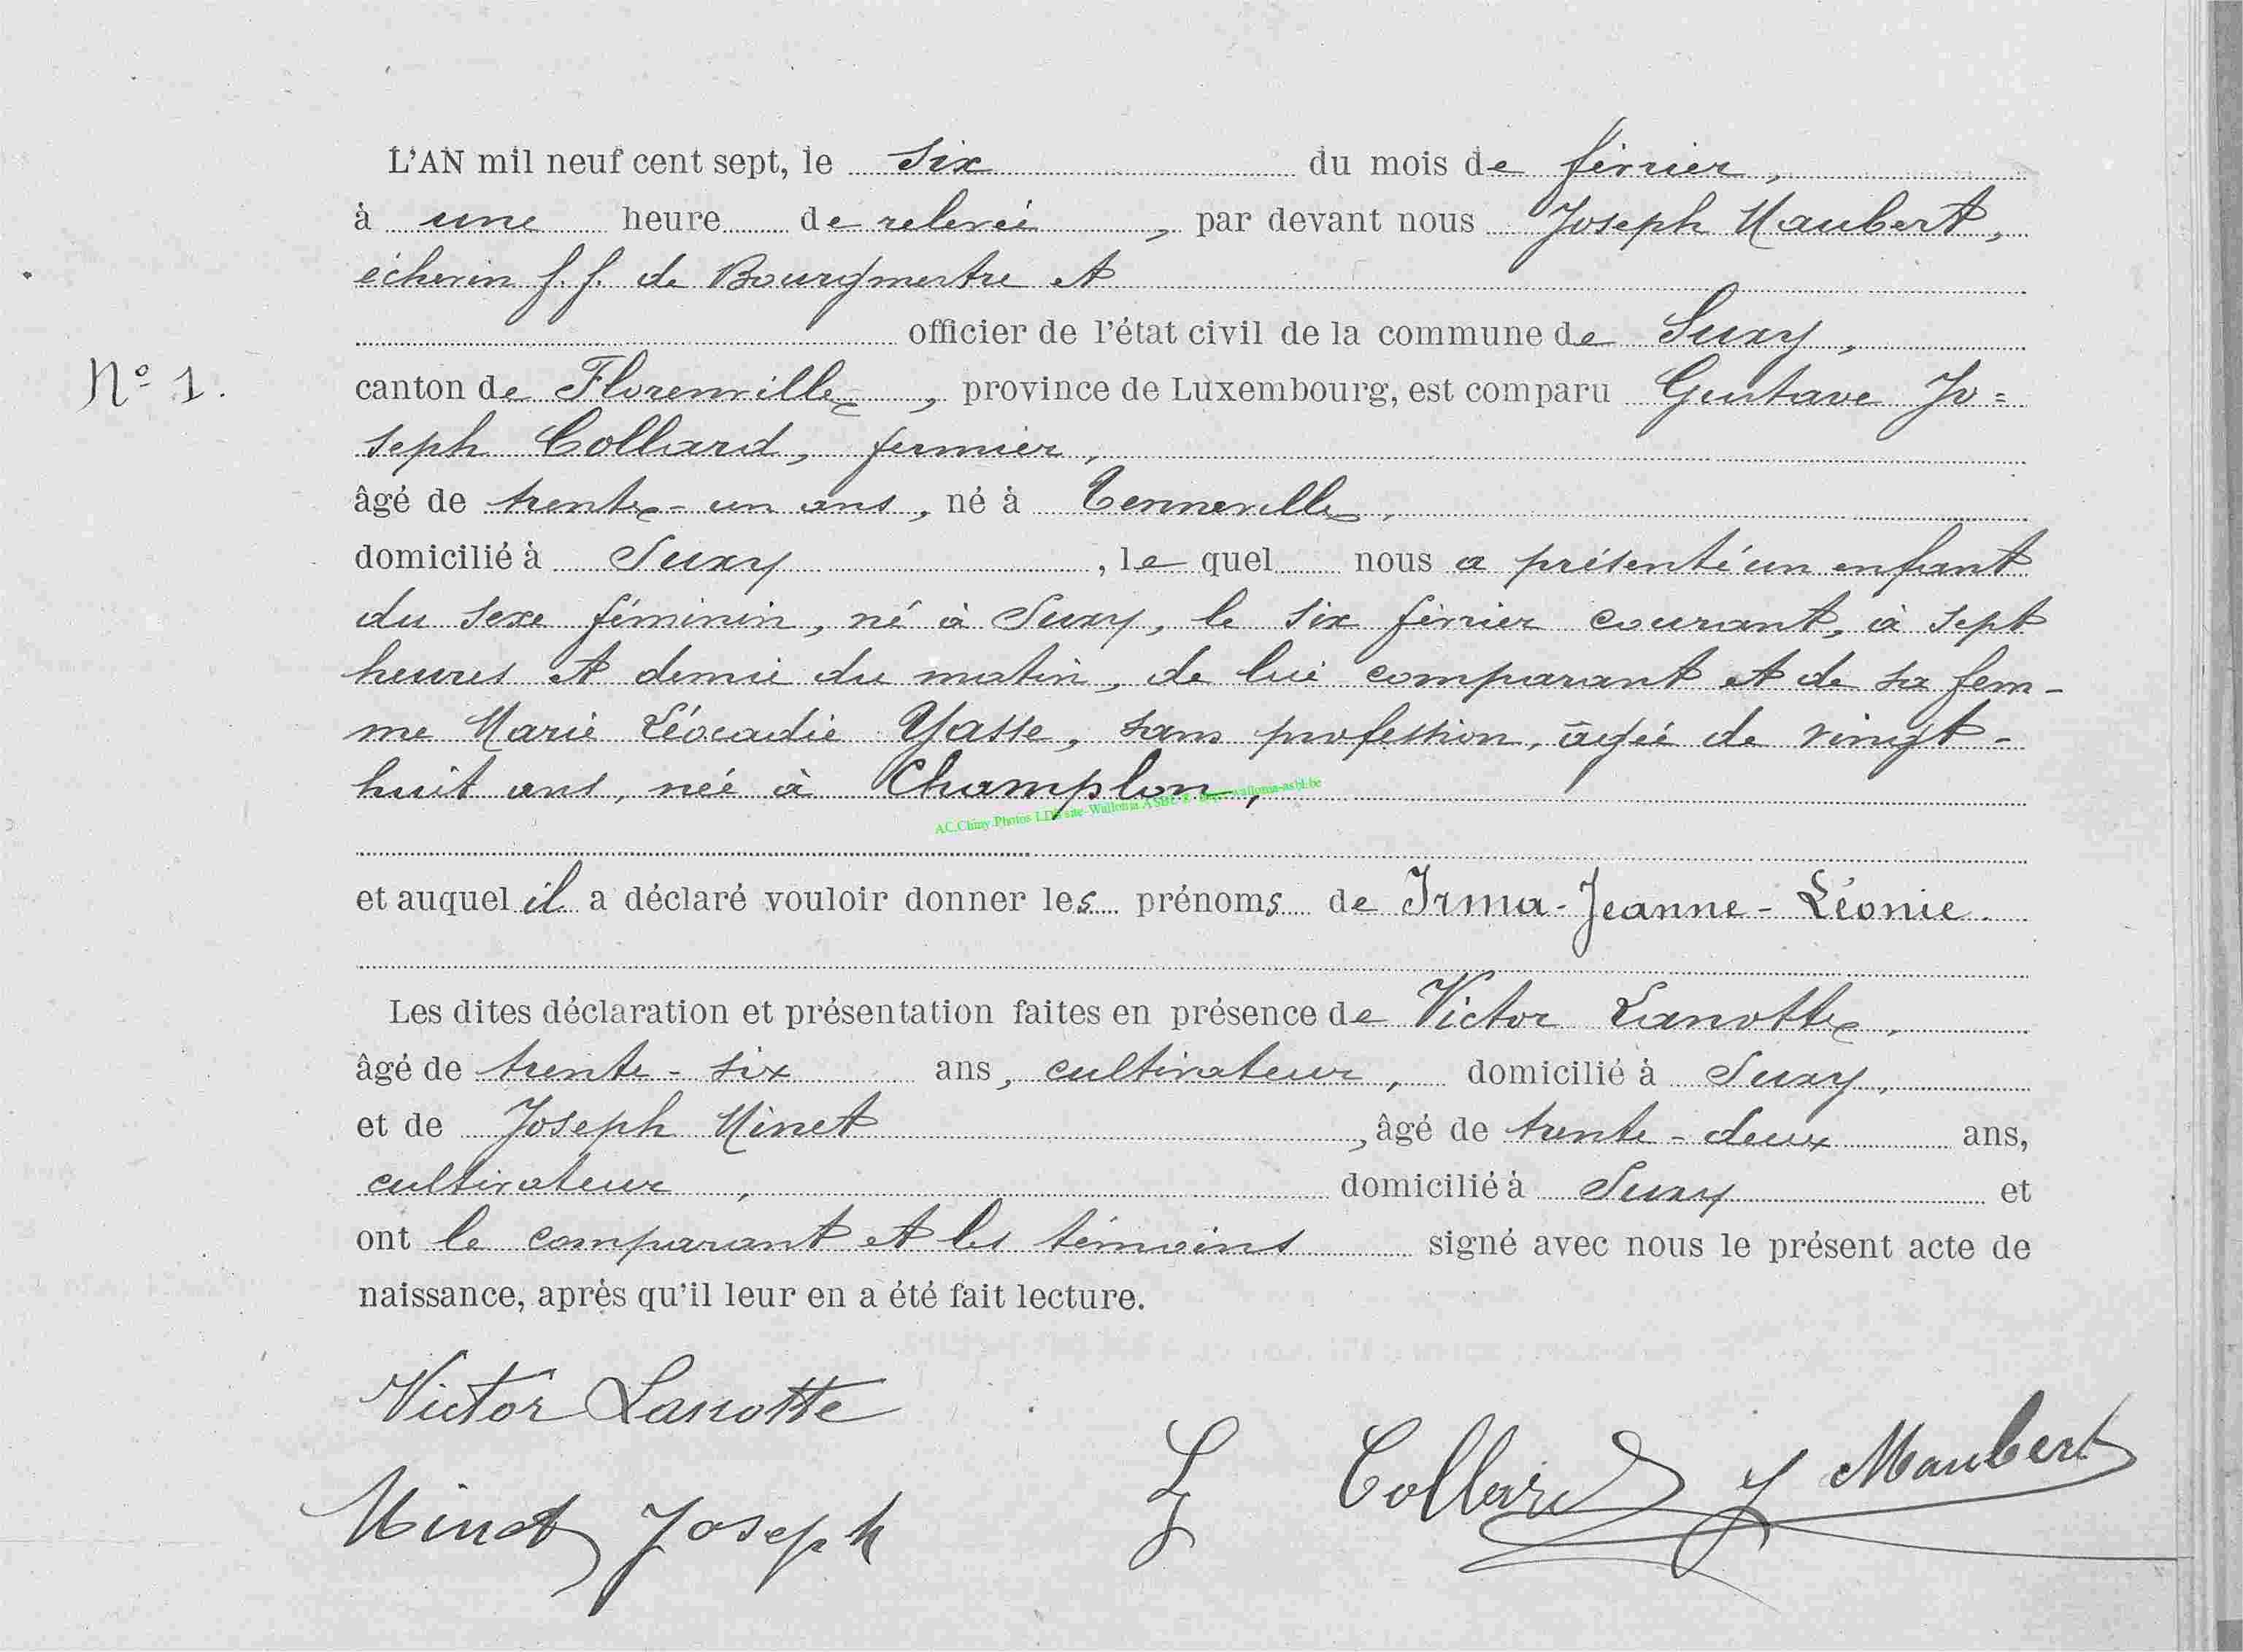 L'AN mil neuf cent sept, le six du mois de février,
à une heure de relevée, par devant nous Joseph Maubert,
échevin f.f. de Bourgmestre et
officier de l'état civil de la commune de Suxy,
N° 1.
canton de Florenville, province de Luxembourg, est comparu Gustave Jo=
seph Collard, fermier,
âgé de trente-un ans, né à Tenneville,
domicilié à Suxy, le quel nous a présenté un enfant
du sexe féminin, né à Suxy, le six février courant, à sept
heures et demie du matin, de lui comparant et de sa fem-
me Marie Léocadie Yasse, sans profession, âgée de vingt-
huit ans, née à Champlon,
AC.Chiny.Photos LDB site-Walloma ASBL walloma-asbl.be
et auquel il a déclaré vouloir donner les prénoms de Irma-Jeanne-Léonie.
Les dites déclaration et présentation faites en présence de Victor Lanotte,
âgé de trente-six ans, cultivateur, domicilié à Suxy,
et de Joseph Minet, âgé de trente-deux ans,
cultivateur, domicilié à Suxy et
ont le comparant et les témoins signé avec nous le présent acte de
naissance, après qu'il leur en a été fait lecture.
Victor Lanotte
Collard J Maubert
Minet Joseph